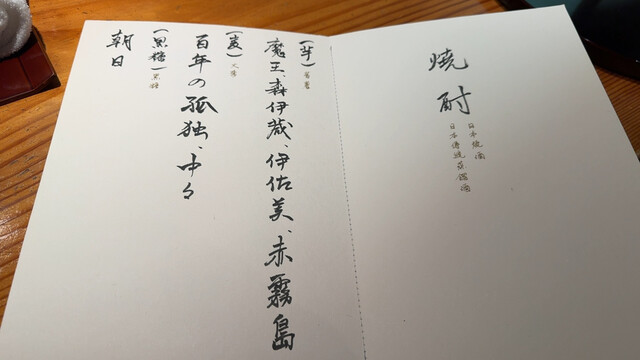 焼酎
日本燒酒
日本傳統蒸餾酒
(芋) 蕃薯
魔王、森伊蔵、伊佐美、赤霧島
(麦) 大麥
百年の孤独、中々
(黒糖) 黑糖
朝日